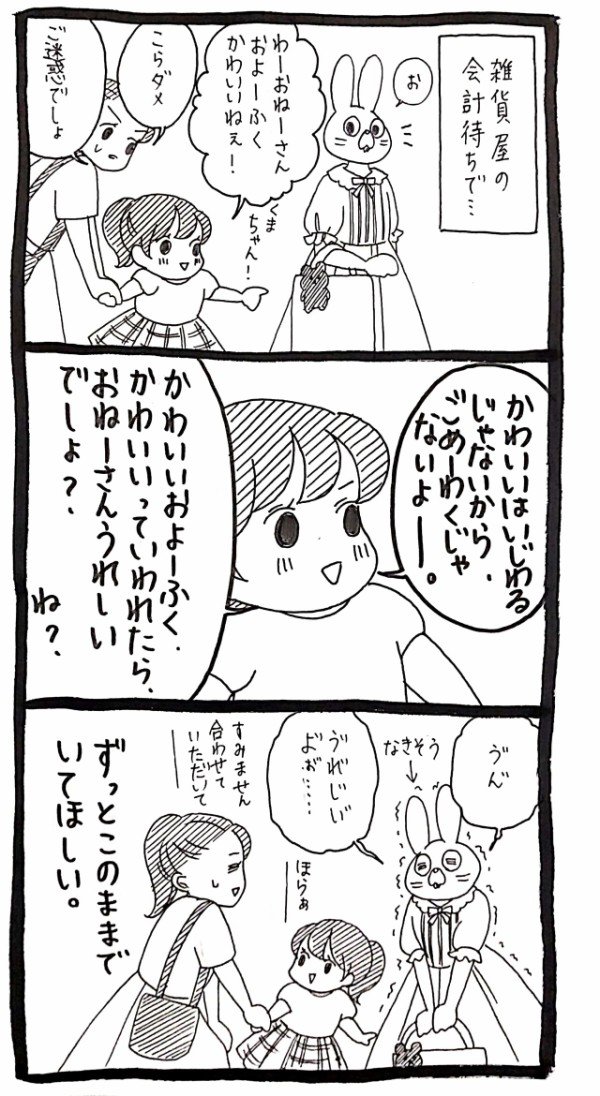 雑貨屋の
会計待ちで…
お
わーおねーさん
およーふく
かわいいねぇ!
くま
ちゃん!
こらダメ
ご迷惑でしょ
かわいいはいじわる
じゃないから、
ごめーわくじゃ
ないよー。
かわいいおよーふく、
かわいいっていわれたら、
おねーさんうれしい
でしょ?、
ね?、
ゔん゙
なきそう
ゔれ゙じい゙
よ゙ぉ゙……
ほらぁ
すみません
合わせて
いただいて
ずっとこのままで
いてほしい。